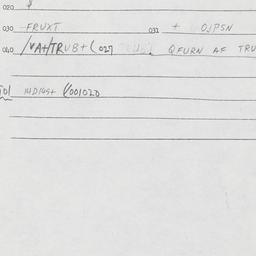 020
030 FRUXT 032 + OJPSN
040 /VAH/TRUB+(027 QFURN AF TRU
101 14D14S+ (001020